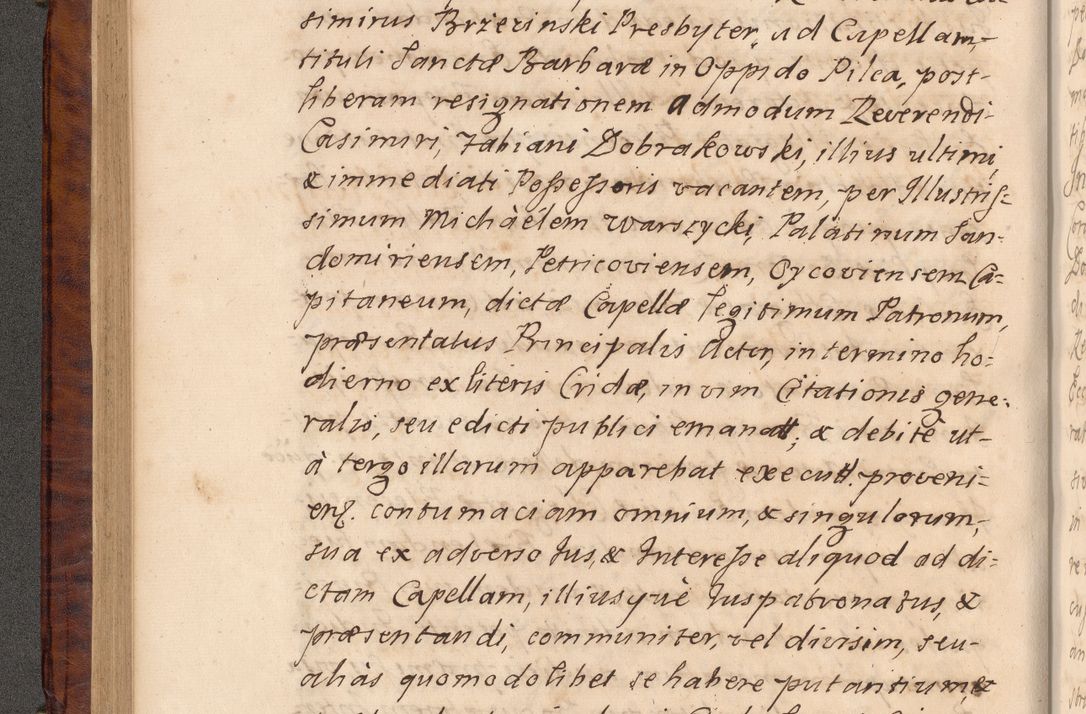 simirus Brzezinski Presbyter, ad Capellam,
tituli Sanctæ Barbaræ in Oppido Pilca, post-
liberam resignationem Admodum Reverendi
Casimiri, Fabiani Dobrakowski, illius ultimi,
& immediati Poßeßoris vacantem, per Illustriſ=
simum Michàélem Warszycki, Palatinum San-
domiriensem, Petricoviensem, Oycoviensem Ca=
pitaneum, dictæ Capellæ legitimum Patronum,
præsentatus Principalis Actor, in termino ho=
dierno ex literis Cridæ, in vim Citationis gene=
ralis, seu edicti publici emanatt; & debitè ut-
à tergo illarum apparebat executt. proveni=
en. contumaciam omnium, & singulorum,
sua ex adverso Jus, & Intereße aliquod ad di=
ctam Capellam, illiusquè Juspatronatus, &
præsentandi, communiter, vel divisim, seu-
aliàs quomodolibet se habere putantium, &